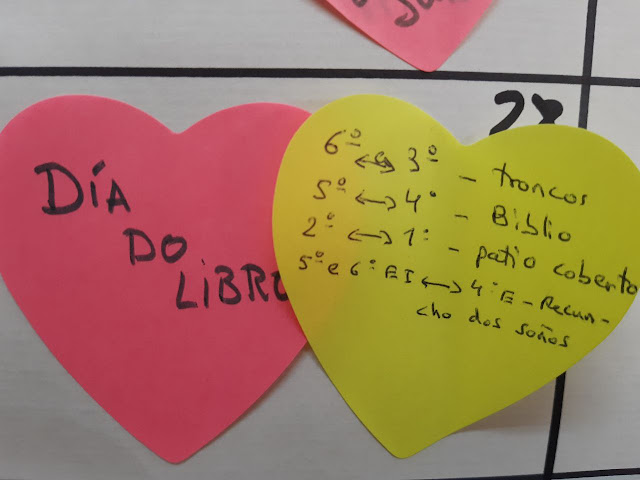 DÍA
DO
LIBRO
6º ↔ 3º - troncos
5º ↔ 4º - Biblio
2º ↔ 1º - patio coberto
5º e 6º EI ↔ 4ºE - Recun-
cho dos soños